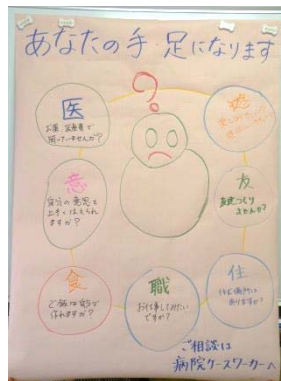 あなたの手・足になります
?
医
お薬、医療費で
困っていませんか?
意
自分の意思を
上手く伝えられ
ますか?
友
友達つくり
ませんか?
食
ご飯は自分で
作れますか?
職
お仕事してみたい
ですか?
住
住む場所は
ありますか?
ご相談は
病院ケースワーカーへ